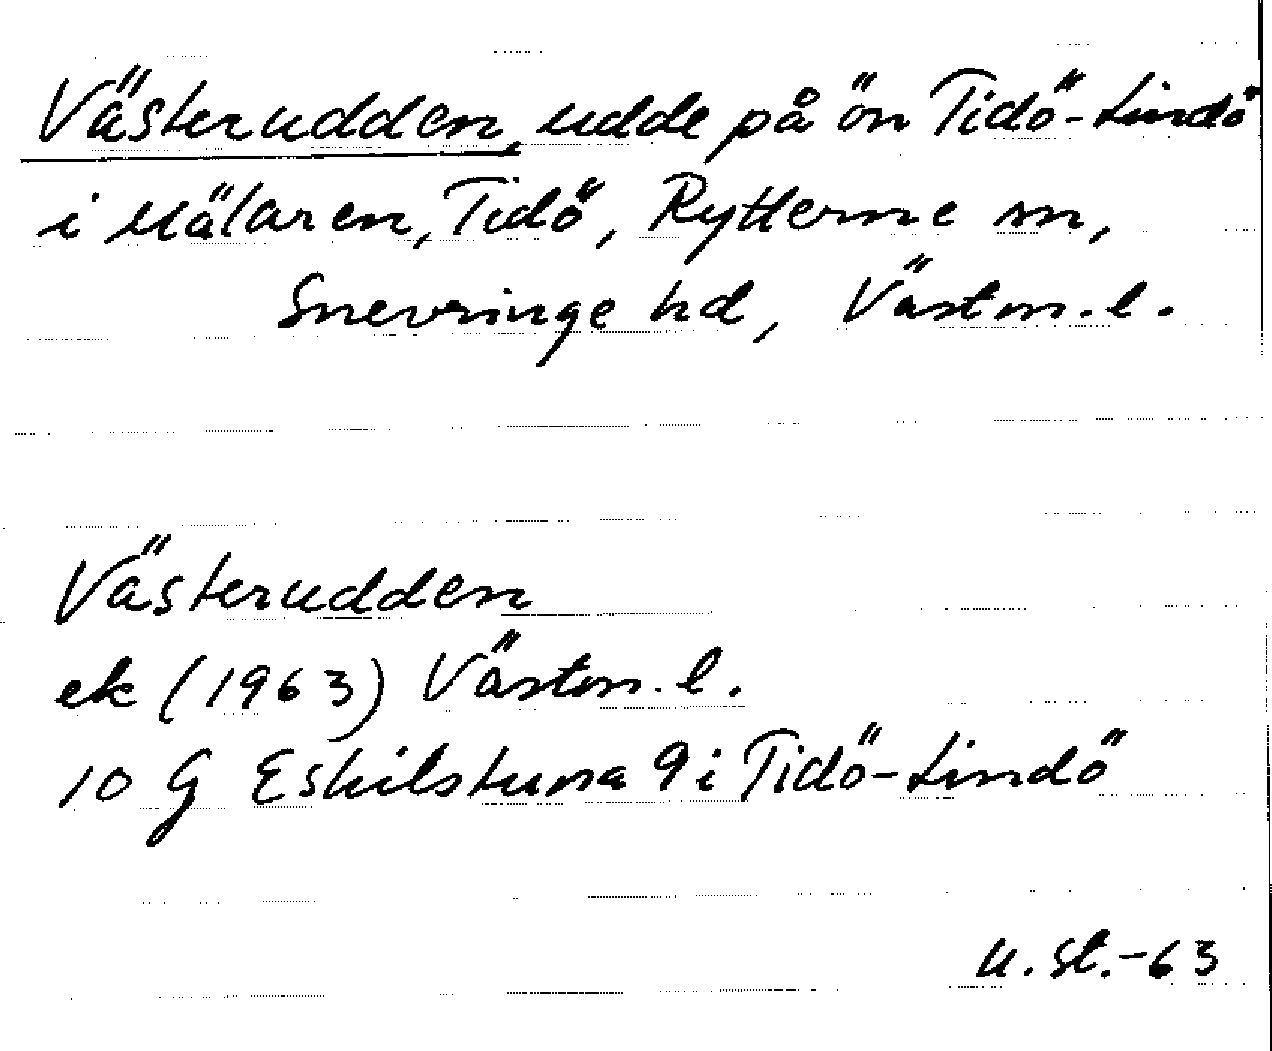 Västerudden, udde på ön Tidö-Lindö
i Mälaren, Tidö, Rytterne sn,
Snevringe hd, Västm. l.
Västerudden
ek (1963) Västm. l.
10 G Eskilstuna 9 i Tidö-Lindö
U. St.-63